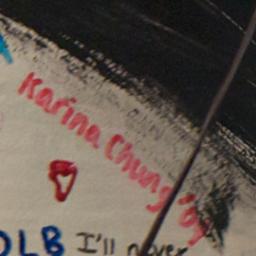 Karina Chung
OLB I'll never